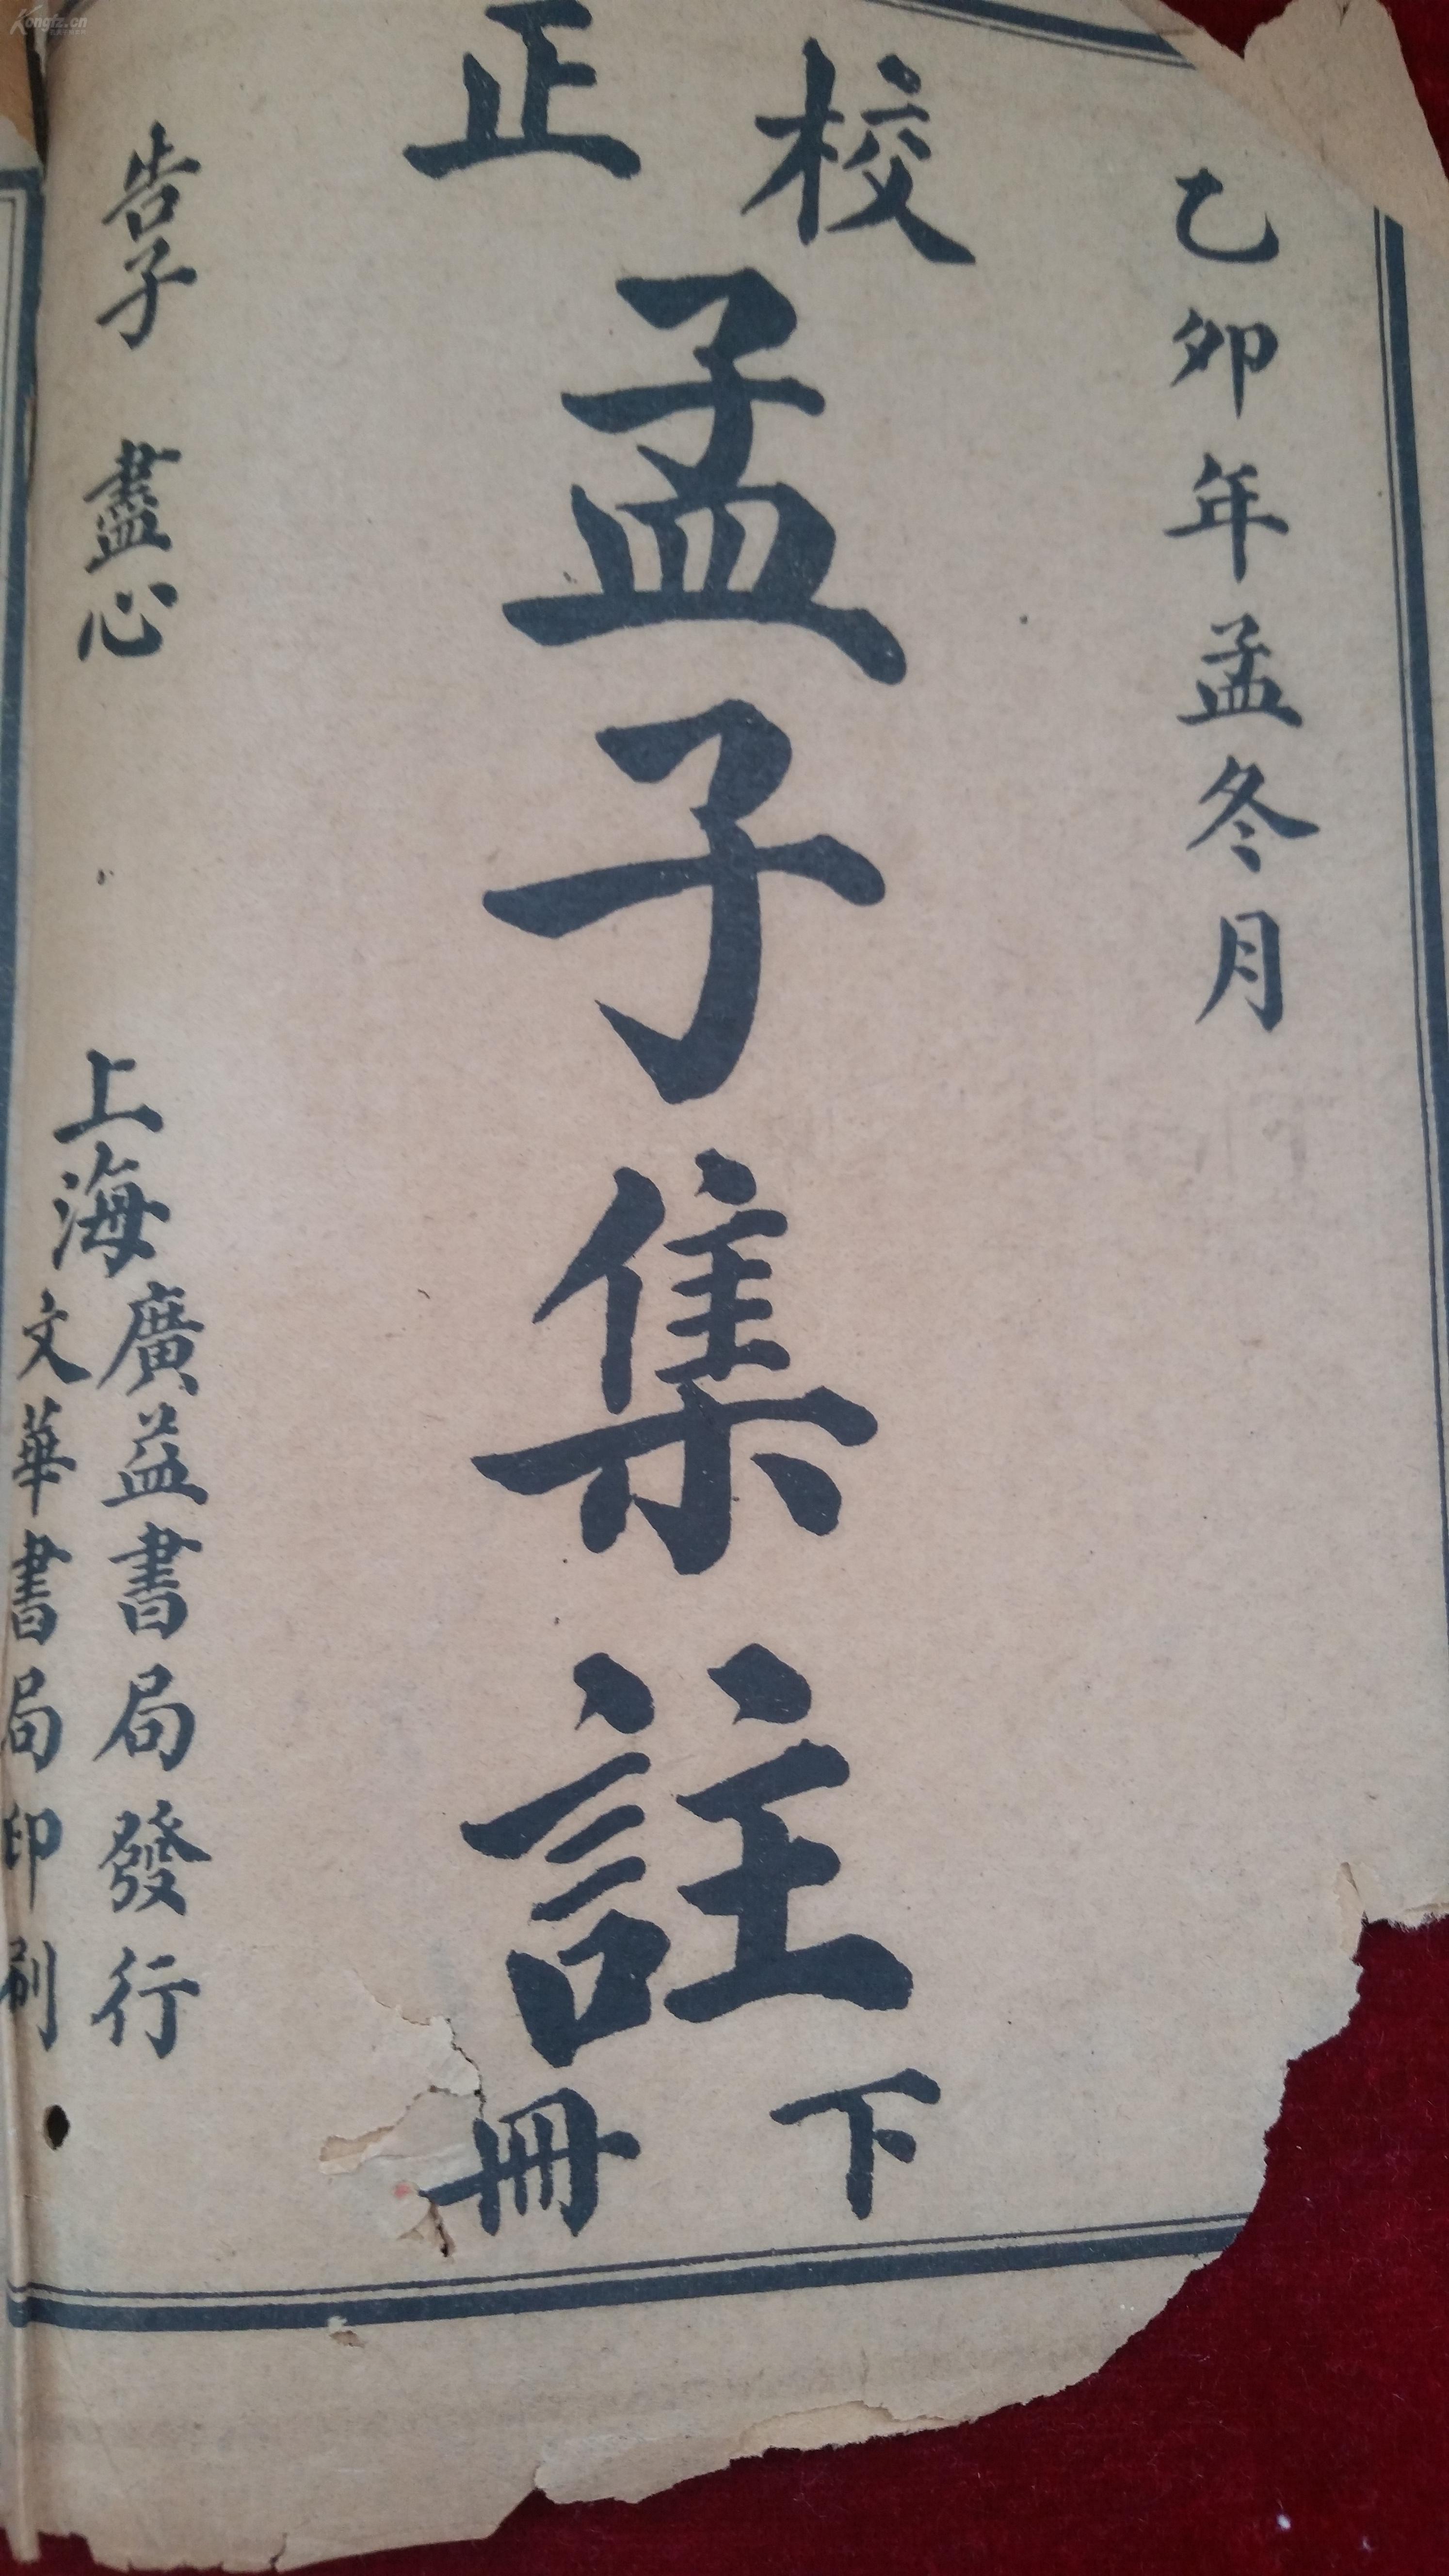 乙卯年孟冬月
校正
孟子集註
下冊
告子 盡心
上海
廣益書局發行
文華書局印刷
Kongfz.cn